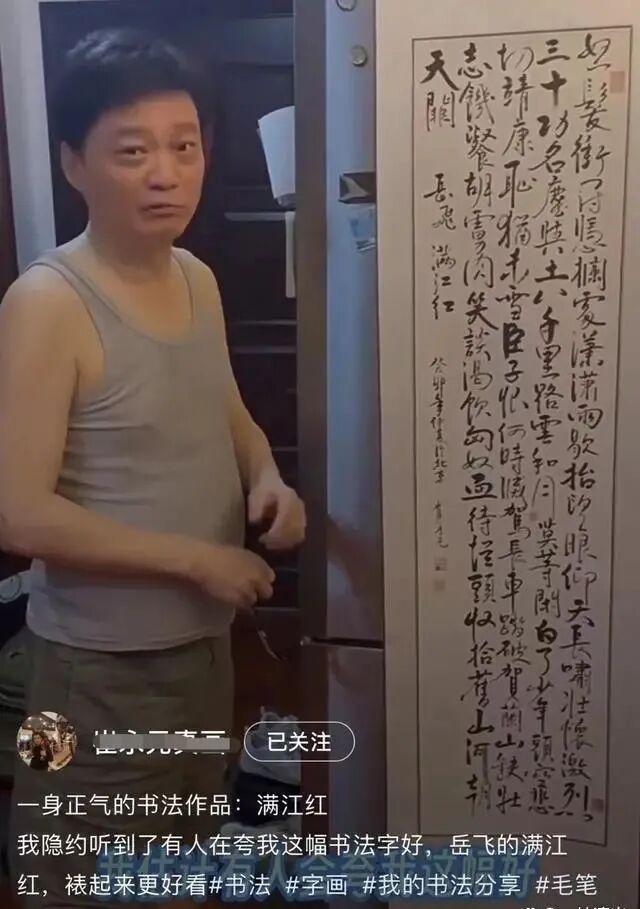 怒髮衝冠憑欄處瀟瀟雨歇抬望眼仰天長嘯壯懷激烈
三十功名塵與土八千里路雲和月莫等閑白了少年頭空悲
切靖康恥猶未雪臣子恨何時滅駕長車踏破賀蘭山缺壯
志饑餐胡虜肉笑談渴飲匈奴血待從頭收拾舊山河朝
天闕
岳飛 滿江红
癸卯年仲夏於北京
已关注
一身正气的书法作品：满江红
我隐约听到了有人在夸我这幅书法字好，岳飞的满江
红，裱起来更好看#书法 #字画 #我的书法分享 #毛笔